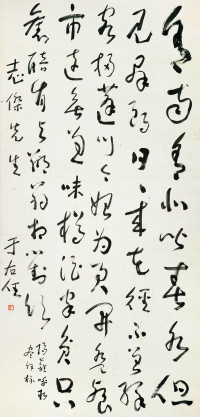 舍南舍北皆春水但
見群鷗日〻來花徑不曾緣
客掃蓬門今始為君開盤飧
市遠無兼味樽酒家貧只
舊醅肯與鄰翁相對飲
隔籬呼取
盡餘杯
志傑先生
于右任